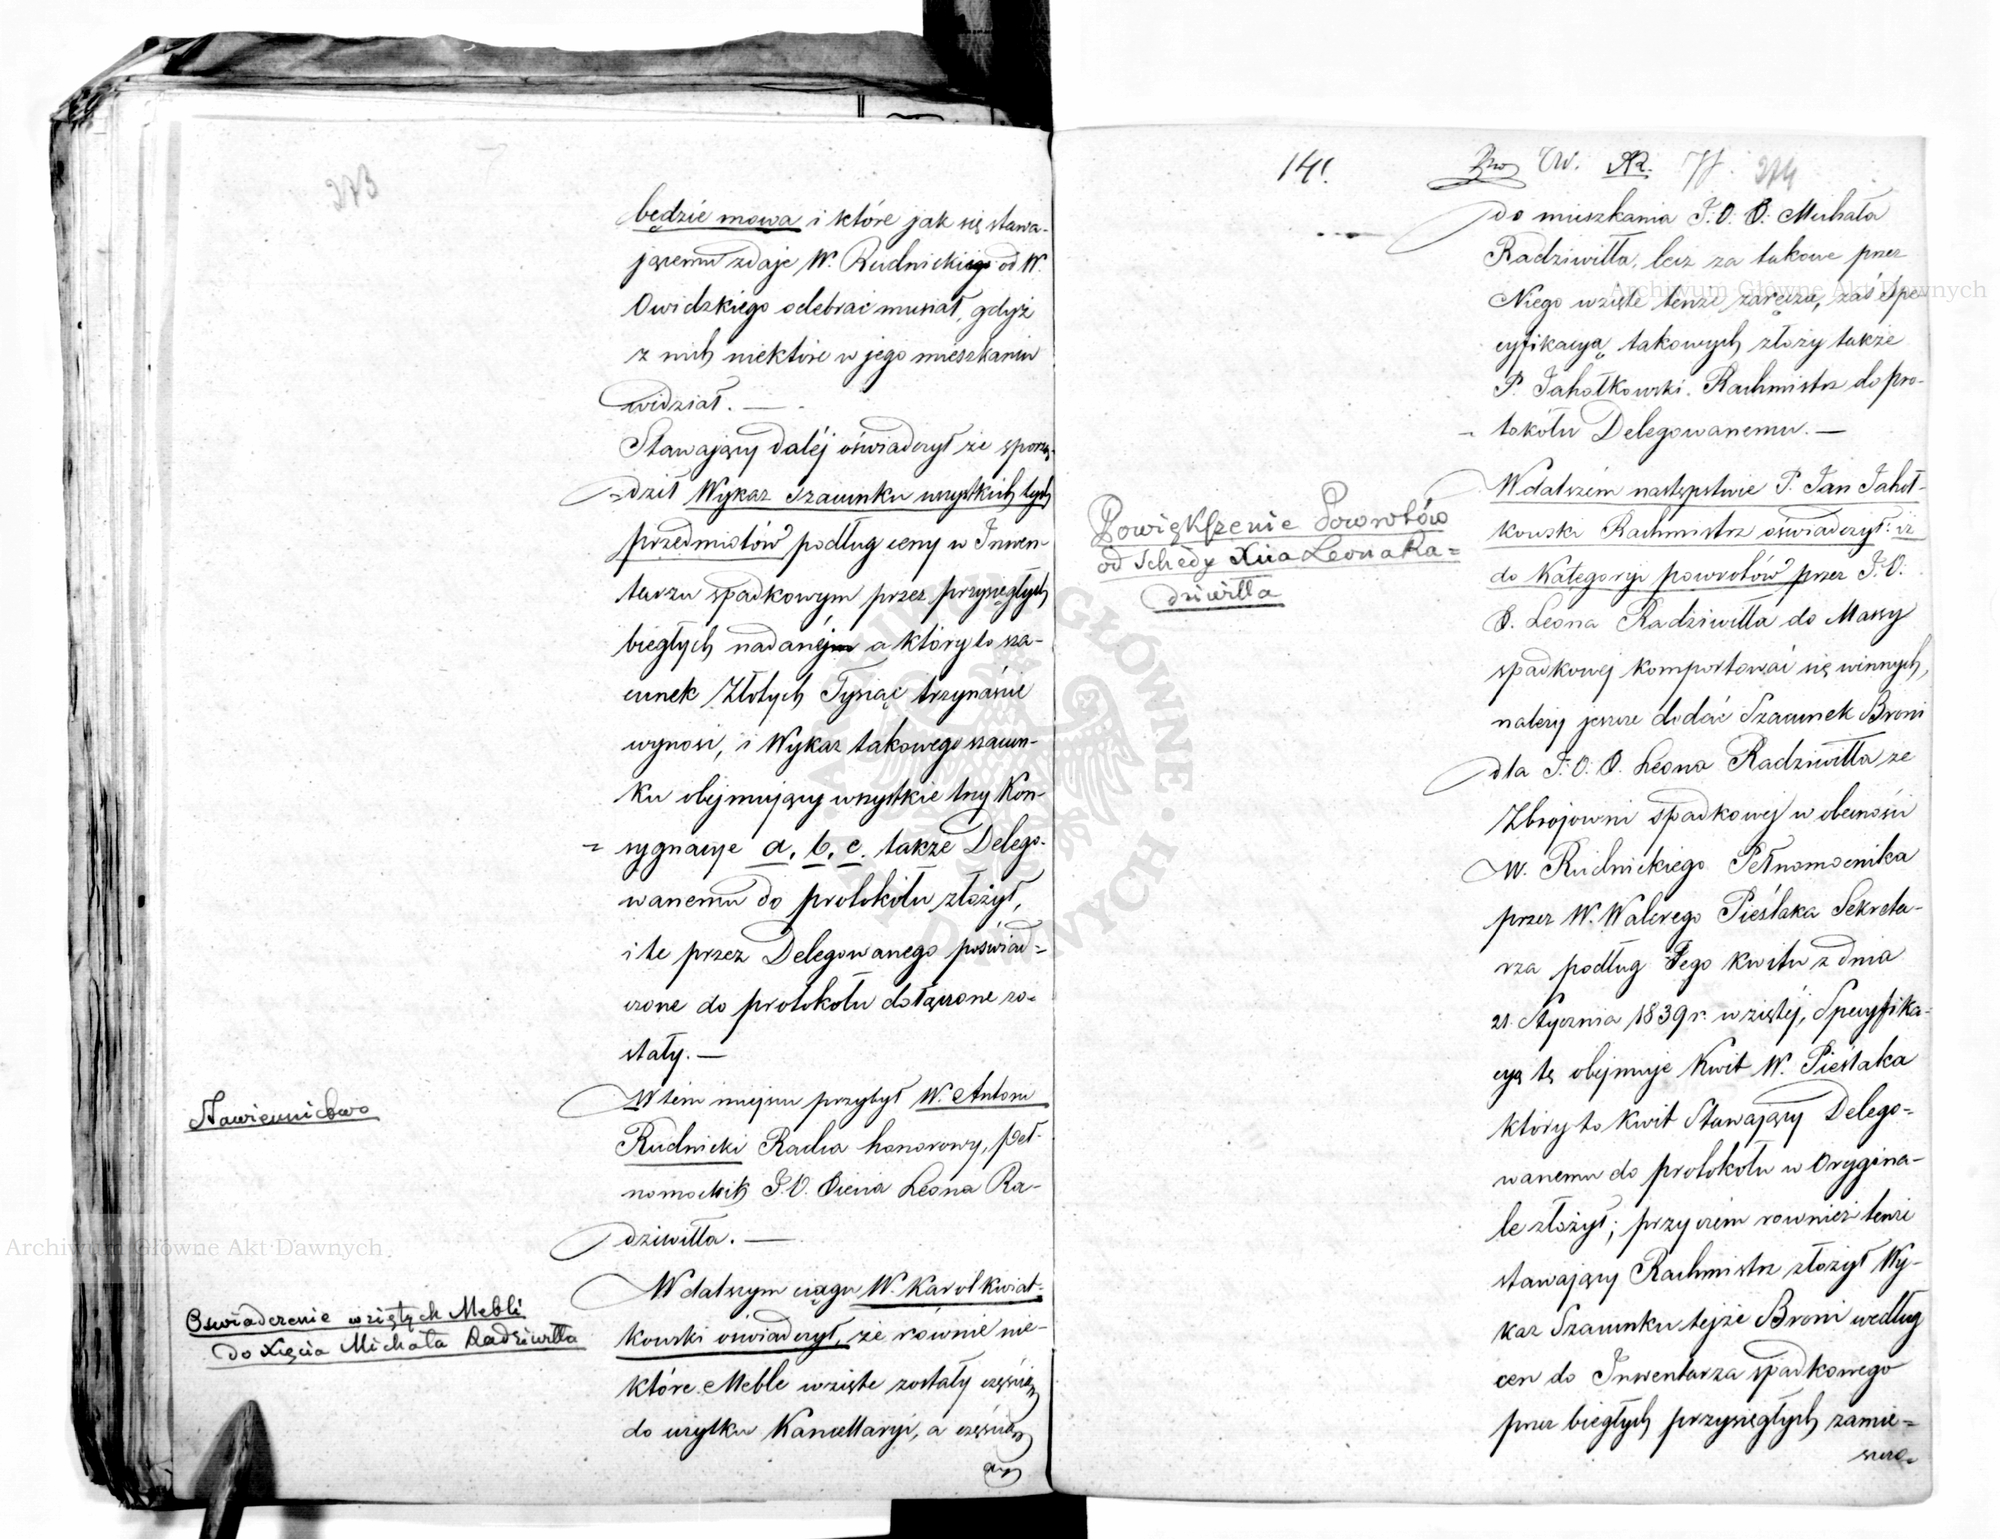 273
będzie mowa i które jak się stawa-
jącemu zdaje W. Rudnickiego od W.
Owidzkiego odebrać musiał, gdyż
z nich niektóre w jego mieszkaniu
widział. —
Stawający daléj oświadczył że sporzą-
dził Wykaz szacunku wszystkich tych
przedmiotów podług ceny w Inwen-
tarzu spadkowym przez przysięgłych
biegłych nadanéj a który to sza-
cunek Złotych Tysiąc trzynaście
wynosi, i Wykaz takowego szacun-
ku obejmujący wszystkie trzy Kon-
sygnacye a, b, c, także Delego-
wanemu do protokółu złożył,
i te przez Delegowanego poświad=
czone do protokółu dołączone zo-
stały. —
Stawiennictwo
W tém miejscu przybył W. Antoni
Rudnicki Radca honorowy, peł-
nomocnik J. O. Xięcia Leona Ra-
dziwiłła. —
Oświadczenie wziętych Mebli
do Xięcia Michała Radziwiłła
W dalszym ciągu W. Karol Kwiat-
kowski oświadczył, że równie nie-
które Meble wzięte zostały częścią
do użytku Kancellaryi, a częścią
141.
W. 274
do mieszkania J. O. X. Michała
Radziwiłła, lecz za takowe przez
Niego wzięte tenże zaręcza, zaś Spe-
cyfikacyą takowych złoży także
P. Jahołkowski Rachmistrz do pro-
tokółu Delegowanemu. —
Powiększenie Powrotów
od Schedy Xcia Leona Ra=
dziwiłła
W dalszém następstwie P. Jan Jahoł-
kowski Rachmistrz oświadczył: iż
do Kategoryi powrotów przez J. O.
X. Leona Radziwiłła do Massy
spadkowej komportować się winnych,
należy jeszcze dodać Szacunek Broni
dla J. O. X. Leona Radziwiłła ze
Zbrojowni spadkowej w obecności
W. Rudnickiego Pełnomocnika
przez W. Walerego Pieślaka Sekreta-
rza podług Jego kwitu z dnia
21. Stycznia 1839 r. wziętéj, Specyfika-
cyą tę obejmuje Kwit W. Pieślaka
który to Kwit Stawający Delego=
wanemu do protokółu w Orygina-
le złożył; przyczem również tenże
stawający Rachmistrz złożył Wy-
kaz Szacunku tejże Broni według
cen do Inwentarza spadkowego
przez biegłych przysięgłych zamie=
szczo-
Archiwum Główne Akt Dawnych
Archiwum Główne Akt Dawnych